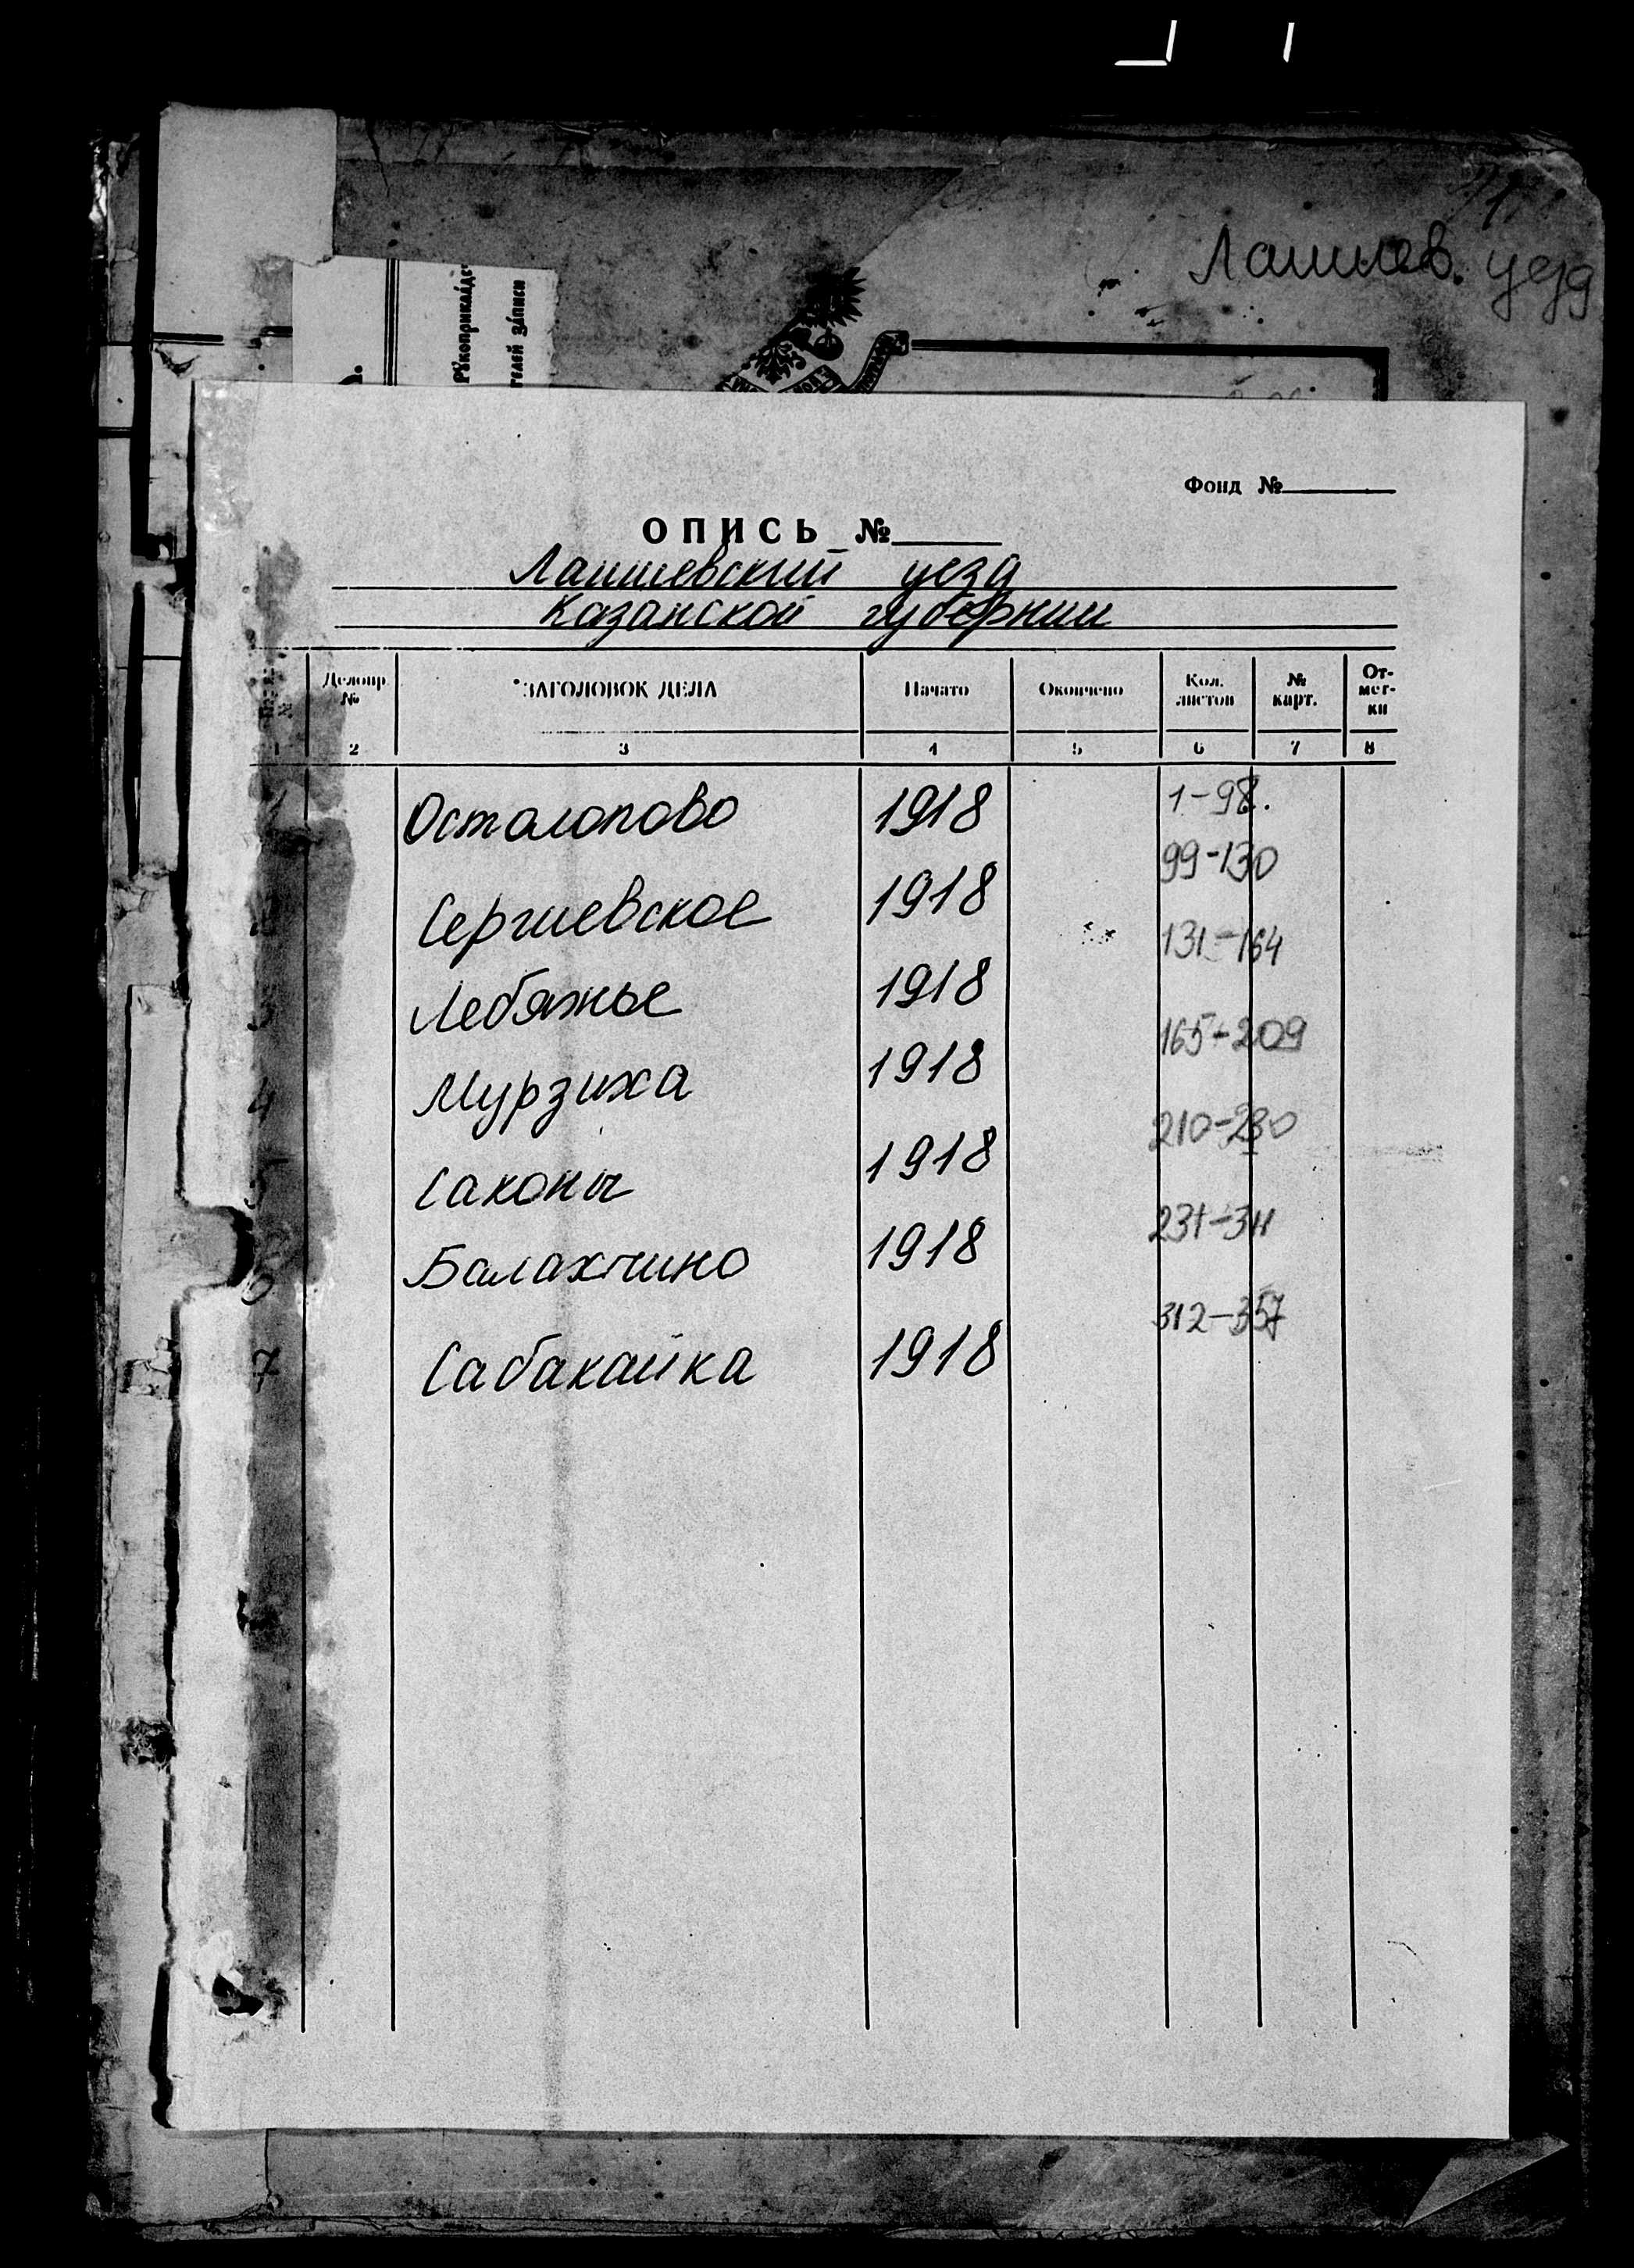 Лаишев. уезд
Рукоприклад
телей записи
Фонд №
ОПИСЬ №
Лаишевский уезд
Казанской губернии
№ Делопр. № ЗАГОЛОВОК ДЕЛА Начато Окончено Кол. листов № карт. От-мет-ки
1 2 3 4 5 6 7 8
1 Осталопово 1918 1-98.
2 Сергиевское 1918 99-130
3 Лебяжье 1918 131-164
4 Мурзиха 1918 165-209
5 Саконы 1918 210-230
6 Балахчино 1918 231-311
7 Сабакайка 1918 312-357